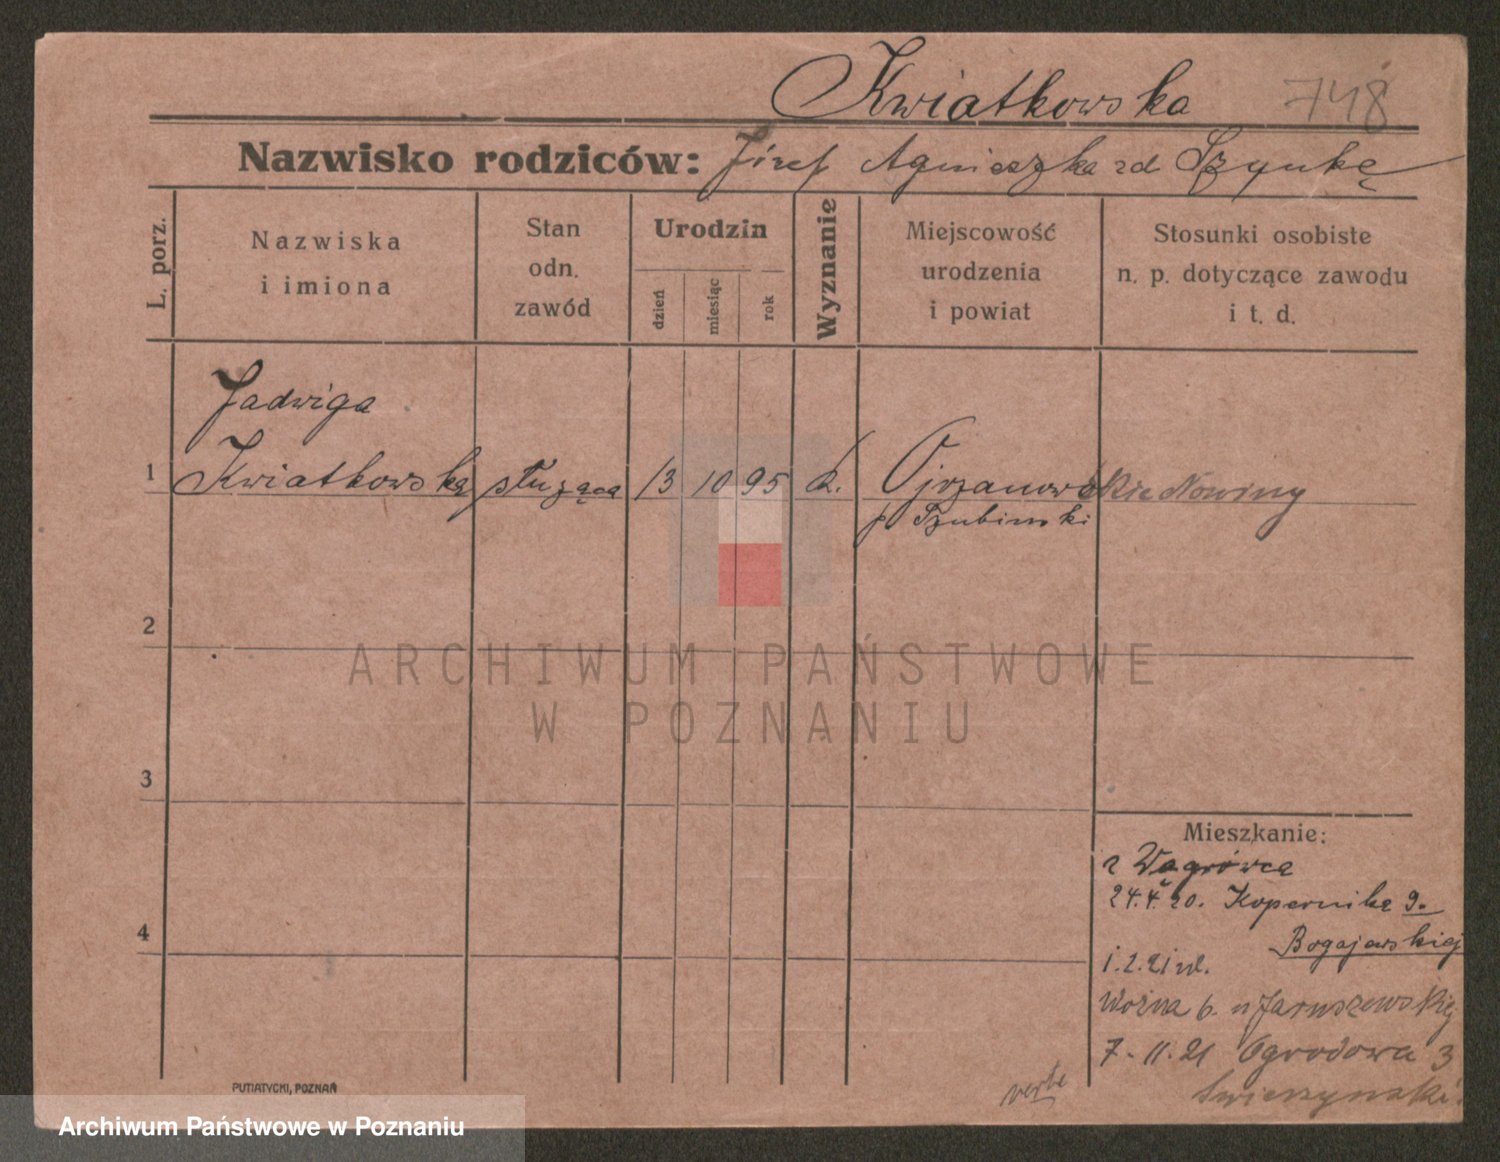 Kwiatkowska 748
Nazwisko rodziców: Józef Agnieszka zd Szynkę
L. porz.
Nazwiska
i imiona
Stan
odn.
zawód
Urodzin
dzień
miesiąc
rok
Wyznanie
Miejscowość
urodzenia
i powiat
Stosunki osobiste
n. p. dotyczące zawodu
i t. d.
Jadwiga
1 Kwiatkowska służąca 13 10 95 k. Ojrzanowskie Nowiny
p Szubinski
2
ARCHIWUM PAŃSTWOWE
W POZNANIU
3
4
Mieszkanie:
z Wągrówca
24.4.20. Kopernika 9.
Bogajewskiej
1.2.21
Woźna 6. u Jaruszewskiej
7-11.21 Ogrodowa 3
Swierzynski
verte
PUTIATYCKI, POZNAŃ
Archiwum Państwowe w Poznaniu